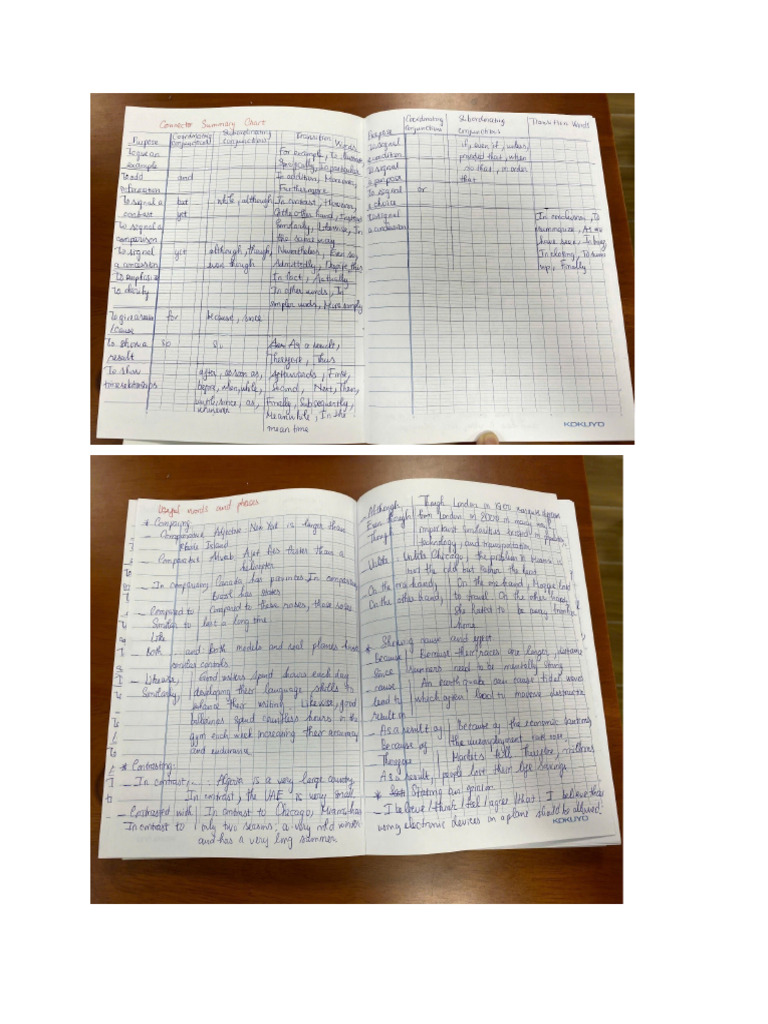 Connector Summary Chart
Purpose Coordinating conjunctions Subordinating conjunctions Transition Words
To give an example For example, To illustrate
Specifically, In particular
To add information and In addition, Moreover,
Furthermore
To signal a contrast but while, although In contrast, However,
yet On the other hand, Instead
To signal a comparison Similarly, Likewise, In
the same way
To signal a concession yet although, though, Nevertheless, Even so,
even though Admittedly, Despite this
To emphasize In fact, Actually
To clarify In other words, In
simpler words, More simply
To give a reason / cause for because, since
To show a result so so As a result,
Therefore, Thus
To show time relationships after, as soon as, Afterwards, First,
before, when, while, Second, Next, Then,
until, since, as, Finally, Subsequently,
whenever Meanwhile, In the
mean time
Purpose Coordinating Conjunctions Subordinating conjunctions Transition Words
To signal a condition if, even if, unless,
provided that, when
To signal a purpose so that, in order
that
To signal a choice or
To signal a conclusion In conclusion, To
summarize, As we
have seen, In brief
In closing, To sum
up, Finally
KOKUYO
Useful words and phrases
* Comparing
- Comparative Adjective New York is larger than
Rhode Island
- Comparative Adverb A jet flies faster than a
helicopter
- In comparison Canada has provinces. In comparison
Brazil has states
- Compared to Compared to these roses, those roses
Similar to last a long time
Like
- Both ... and: Both models and real planes have
controls
- Likewise, Good writers spend hours each day
Similarly, developing their language skills to
enhance their writing. Likewise, good
spend countless hours in the
gym each week increasing their accuracy
and endurance
* Contrasting:
- In contrast, ... Algeria is a very large country
In contrast, the UAE is very small
- Contrasted with In contrast to Chicago, Miami has
In contrast to only two seasons: a very mild winter
and has a very long summer
- Although Though London in 1900
Even though from London in 2000 in many ways
Though important similarities existed in population
technology, and transportation
- Unlike: Unlike Chicago, the problem is Miami is
not the cold but rather the heat
- On the one hand, On the one hand, Maggie loved
On the other hand, to travel. On the other hand,
she hated to be away from her
home
* Showing cause and effect
- Because Because their races are longer,
Since runners need to be mentally strong
cause An earthquake can cause tidal waves
lead to which often lead to massive destruction
result in
- As a result of Because of the economic
Because of the unemployment rate rose.
- Therefore Markets fell Therefore, millions
As a result, people lost their life savings
* Stating an opinion
- I believe / think / feel / agree / that: I believe that
using electronic devices on a plane should be allowed.
KOKUYO